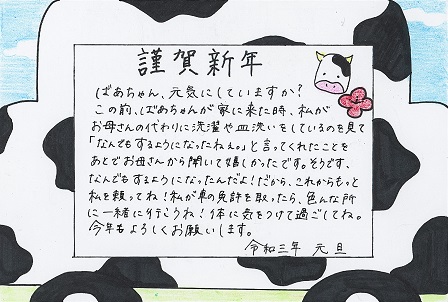 謹賀新年
ばあちゃん、元気にしていますか?
この前、ばあちゃんが家に来た時、私が
お母さんの代わりに洗濯や皿洗いをしているのを見て
「なんでもするようになったねぇ。」と言ってくれたことを
あとでお母さんから聞いて嬉しかったです。そうです、
なんでもするようになったんだよ!だから、これからもっと
私を頼ってね!私が車の免許を取ったら、色んな所
に一緒に行こうね!体に気をつけて過ごしてね。
今年もよろしくお願いします。
令和三年 元旦